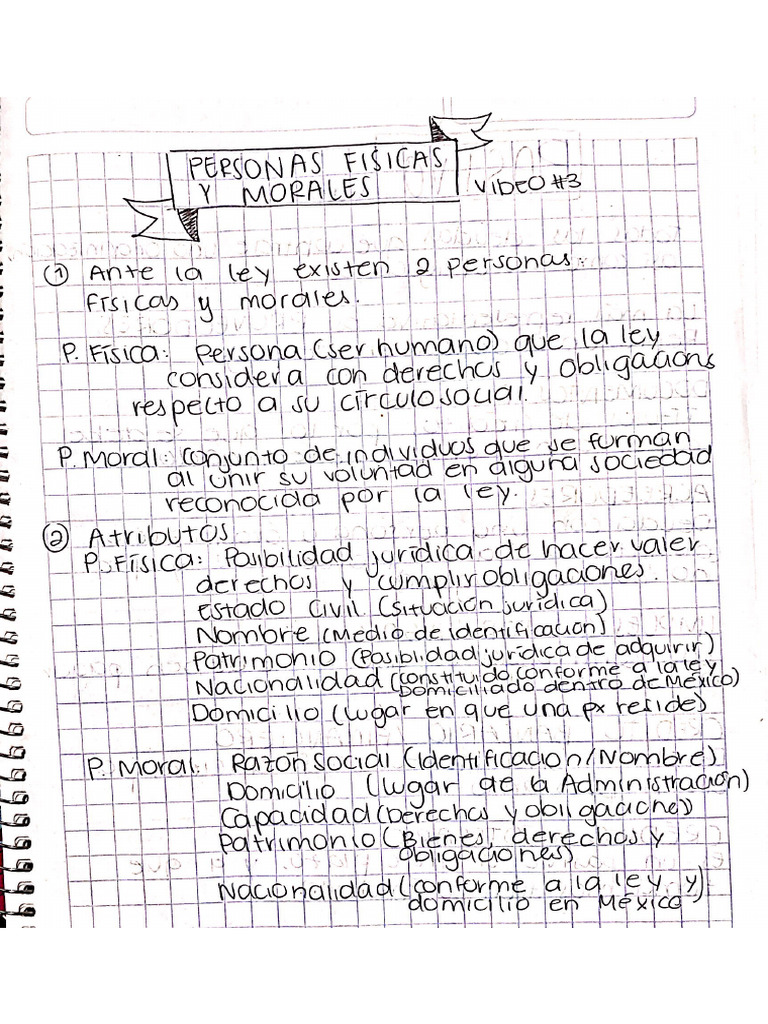 PERSONAS FISICAS
Y MORALES
VIDEO #3
① Ante la ley existen 2 personas:
físicas y morales.
P. Física: Persona (ser humano) que la ley
considera con derechos y obligacions
respecto a su círculo social.
P. Moral: Conjunto de individuos que se forman
al unir su voluntad en alguna sociedad
reconocida por la ley.
② Atributos
P. Física: Posibilidad jurídica de hacer valer
derechos y cumplir obligaciones.
Estado Civil (Situación jurídica)
Nombre (Medio de identificación)
Patrimonio (Posiblidad jurídica de adquirir)
Nacionalidad (constituido conforme a la ley
Domiciliado dentro de México)
Domicilio (lugar en que una px reside)
P. Moral: Razón Social (Identificacion/Nombre)
Domicilio (lugar de la Administración)
Capacidad (Derechos y obligacione)
Patrimonio (Bienes, derechos y
obligaciones)
Nacionalidad (conforme a la ley y)
domicilio en México